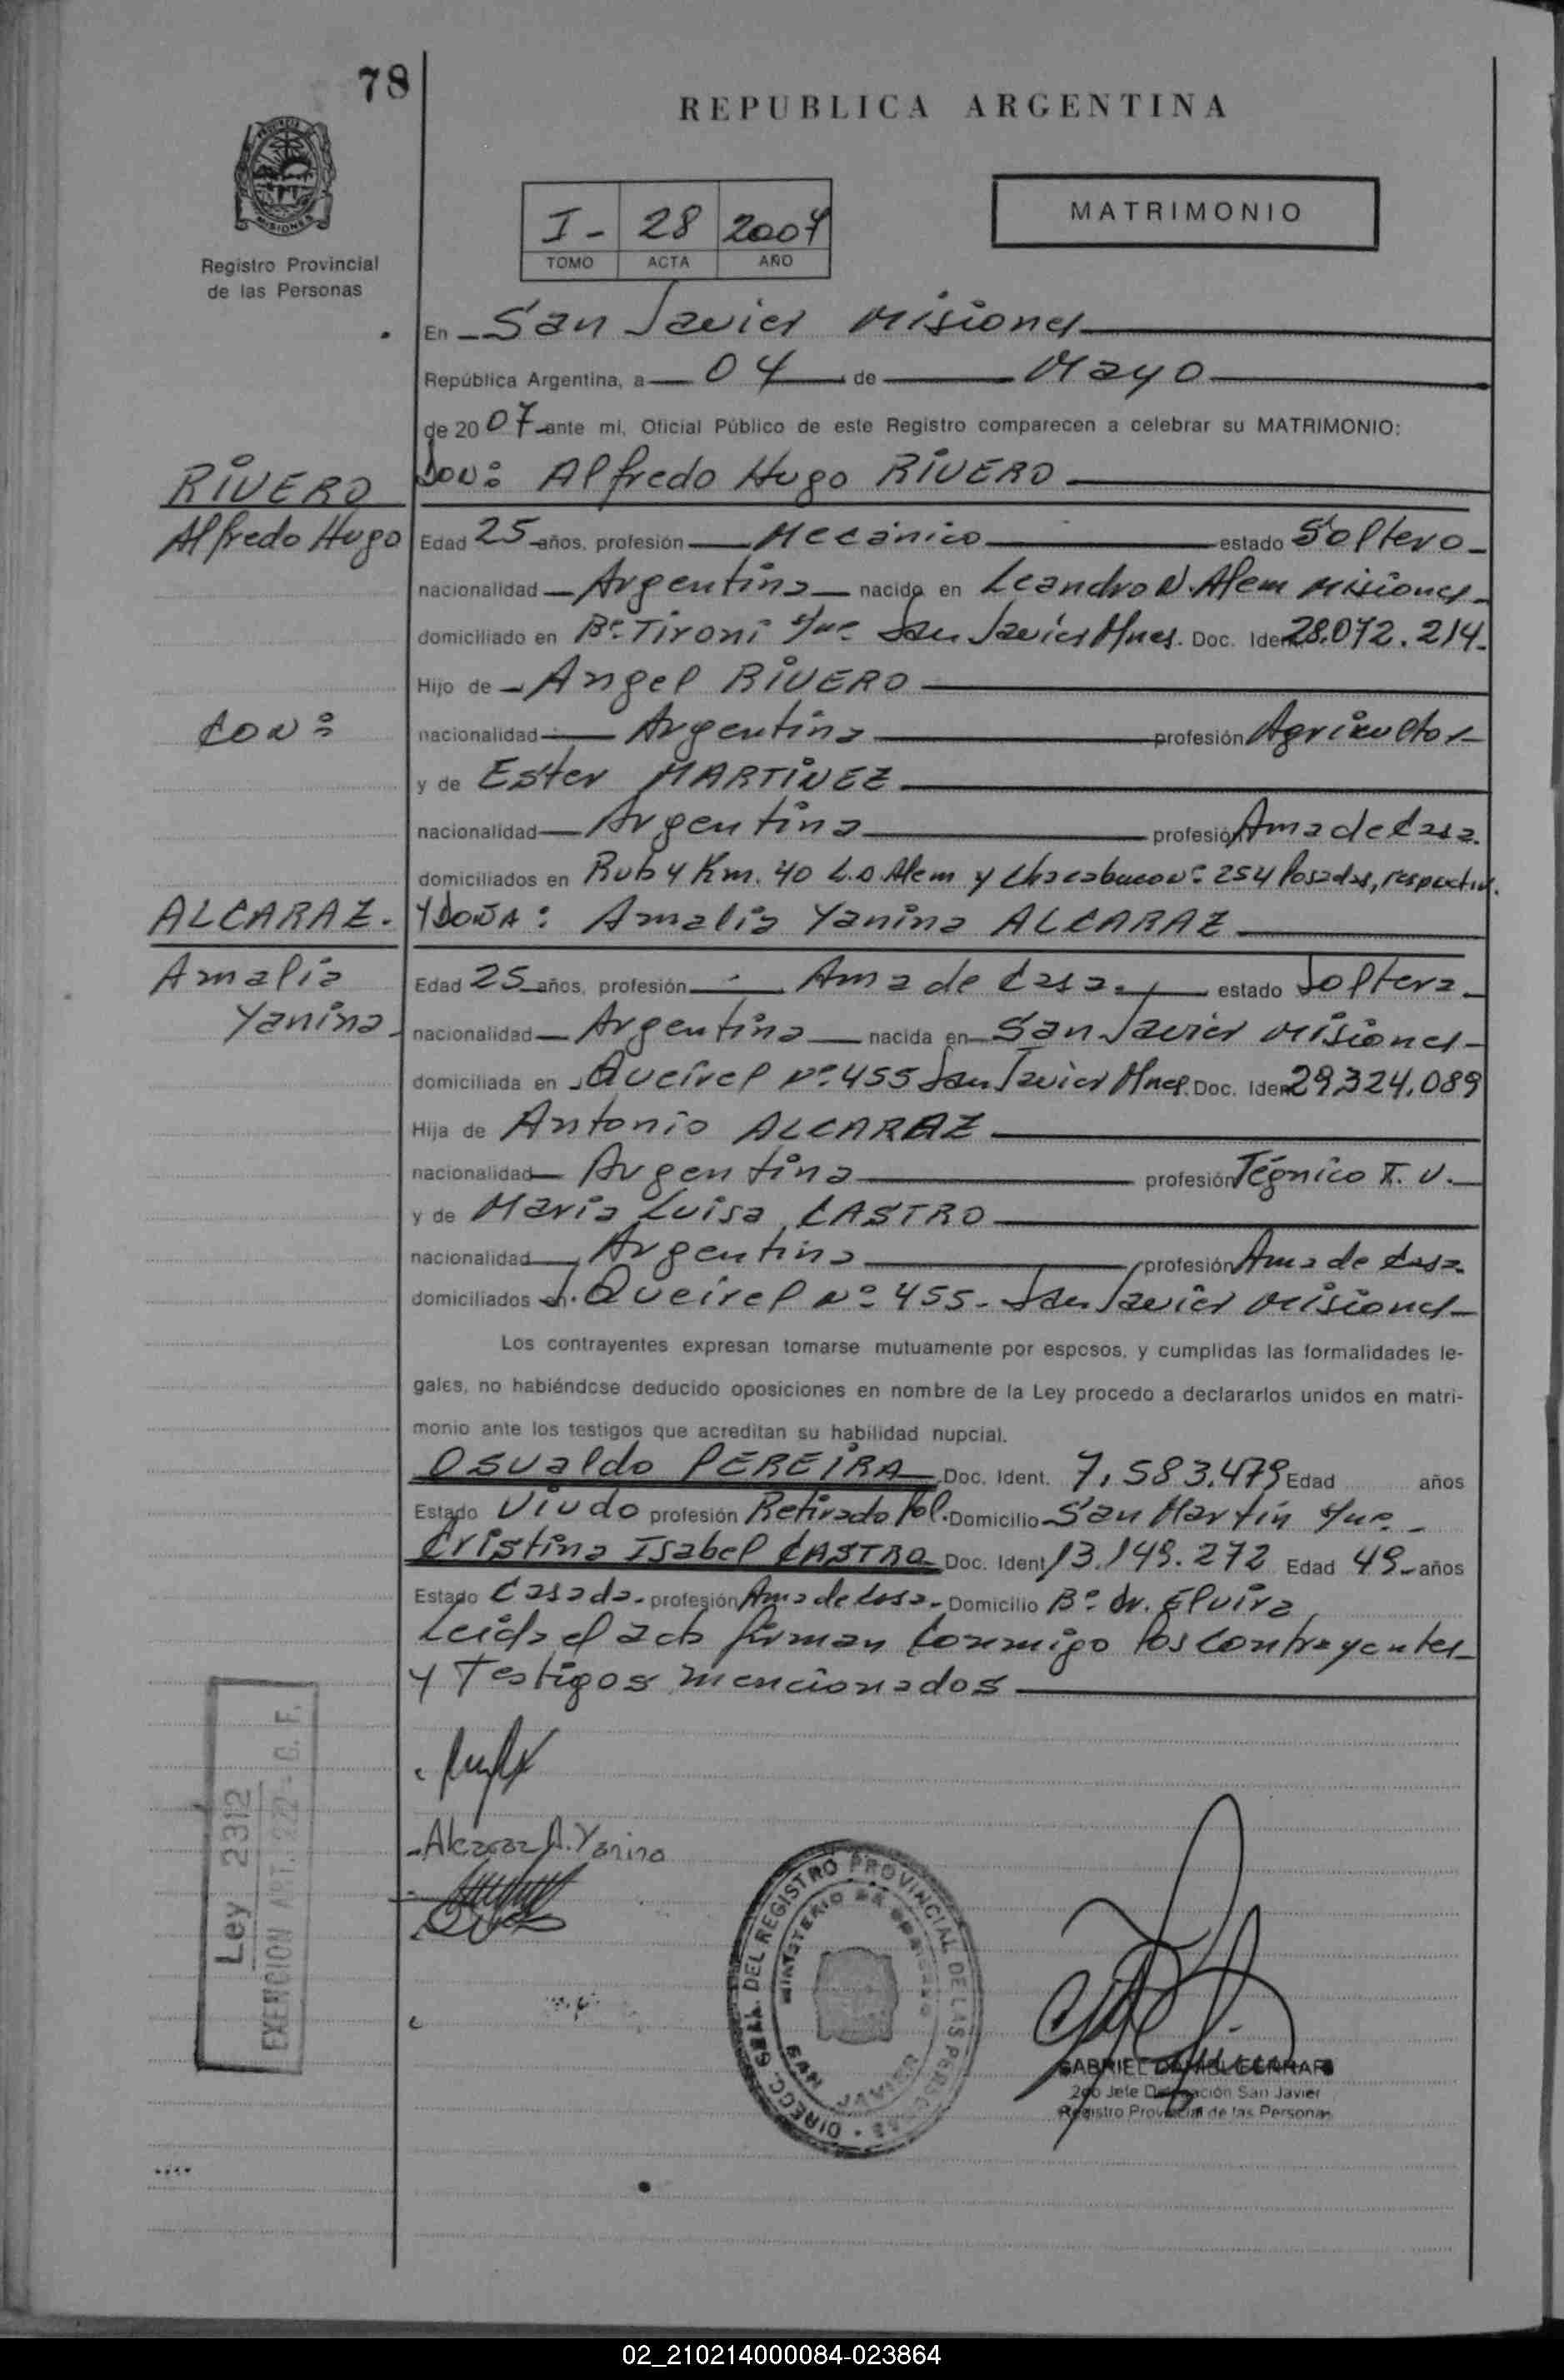 78
REPUBLICA ARGENTINA
I- 28 2007
TOMO ACTA AÑO
MATRIMONIO
Registro Provincial
de las Personas
En San Javier Misiones
República Argentina, a 04 de Mayo
de 2007 ante mi, Oficial Público de este Registro comparecen a celebrar su MATRIMONIO:
RIVERO
Don: Alfredo Hugo RIVERO
Alfredo Hugo
Edad 25 años, profesión Mecánico estado Soltero
nacionalidad Argentina nacido en Leandro N. Alem Misiones
domiciliado en Bº Tironi s/nº San Javier Mnes. Doc. Iden 28.072.214.
Hijo de Angel RIVERO
CON:
nacionalidad Argentina profesión Agricultor
y de Ester MARTINEZ
nacionalidad Argentina profesión Ama de Casa.
domiciliados en Ruta 4 Km. 40 L.N. Alem y Chacabuco Nº 254 Posadas, respectiv.
ALCARAZ.
Y DOÑA: Amalia Yanina ALCARAZ
Amalia
Yanina
Edad 25 años, profesión Ama de Casa. estado Soltera
nacionalidad Argentina nacida en San Javier Misiones
domiciliada en Queirel Nº 455 San Javier Mnes. Doc. Iden 29.324.089
Hija de Antonio ALCARAZ
nacionalidad Argentina profesión Tégnico T. V.
y de Maria Luisa CASTRO
nacionalidad Argentina profesión Ama de Casa.
domiciliados en J. Queirel Nº 455- San Javier Misiones
Los contrayentes expresan tomarse mutuamente por esposos, y cumplidas las formalidades le-
gales, no habiéndose deducido oposiciones en nombre de la Ley procedo a declararlos unidos en matri-
monio ante los testigos que acreditan su habilidad nupcial.
Osvaldo PEREIRA Doc. Ident. 7.583.479 Edad años
Estado Viudo profesión Retirado Pol. Domicilio San Martín s/nº
Cristina Isabel CASTRO Doc. Ident 13.149.272 Edad 49 años
Estado Casada. profesión Ama de Casa. Domicilio Bº Dr. Elvira
Leida el acta firman conmigo los contrayentes
y Testigos mencionados
Alcaraz A. Yanina
Ley 2312
EXENCION ART. 222 - C. F.
DIRECC. GRAL. DEL REGISTRO PROVINCIAL DE LAS PERSONAS
MINISTERIO DE GOBIERNO
SAN JAVIER
GABRIEL
2do Jefe Delegación San Javier
Registro Provincial de las Personas
02_210214000084-023864